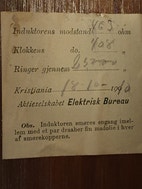 Induktorens modstand 463 ohm
Klokkens do. 408 "
Ringer gjennem 25000 "
Kristiania 18 190
Aktieselskabet Elektrisk Bureau
Obs. Induktoren smøres engang imel-
lem med et par draaber fin maskinolie i hver
af smørekopperne.